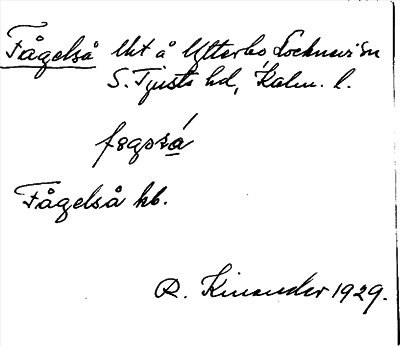 Fågelså litt å Ytterbo Locknevi sn
S. Tjusts hd, Kalm. l.
fsgosá
Fågelså kb.
R. Kinander 1929.